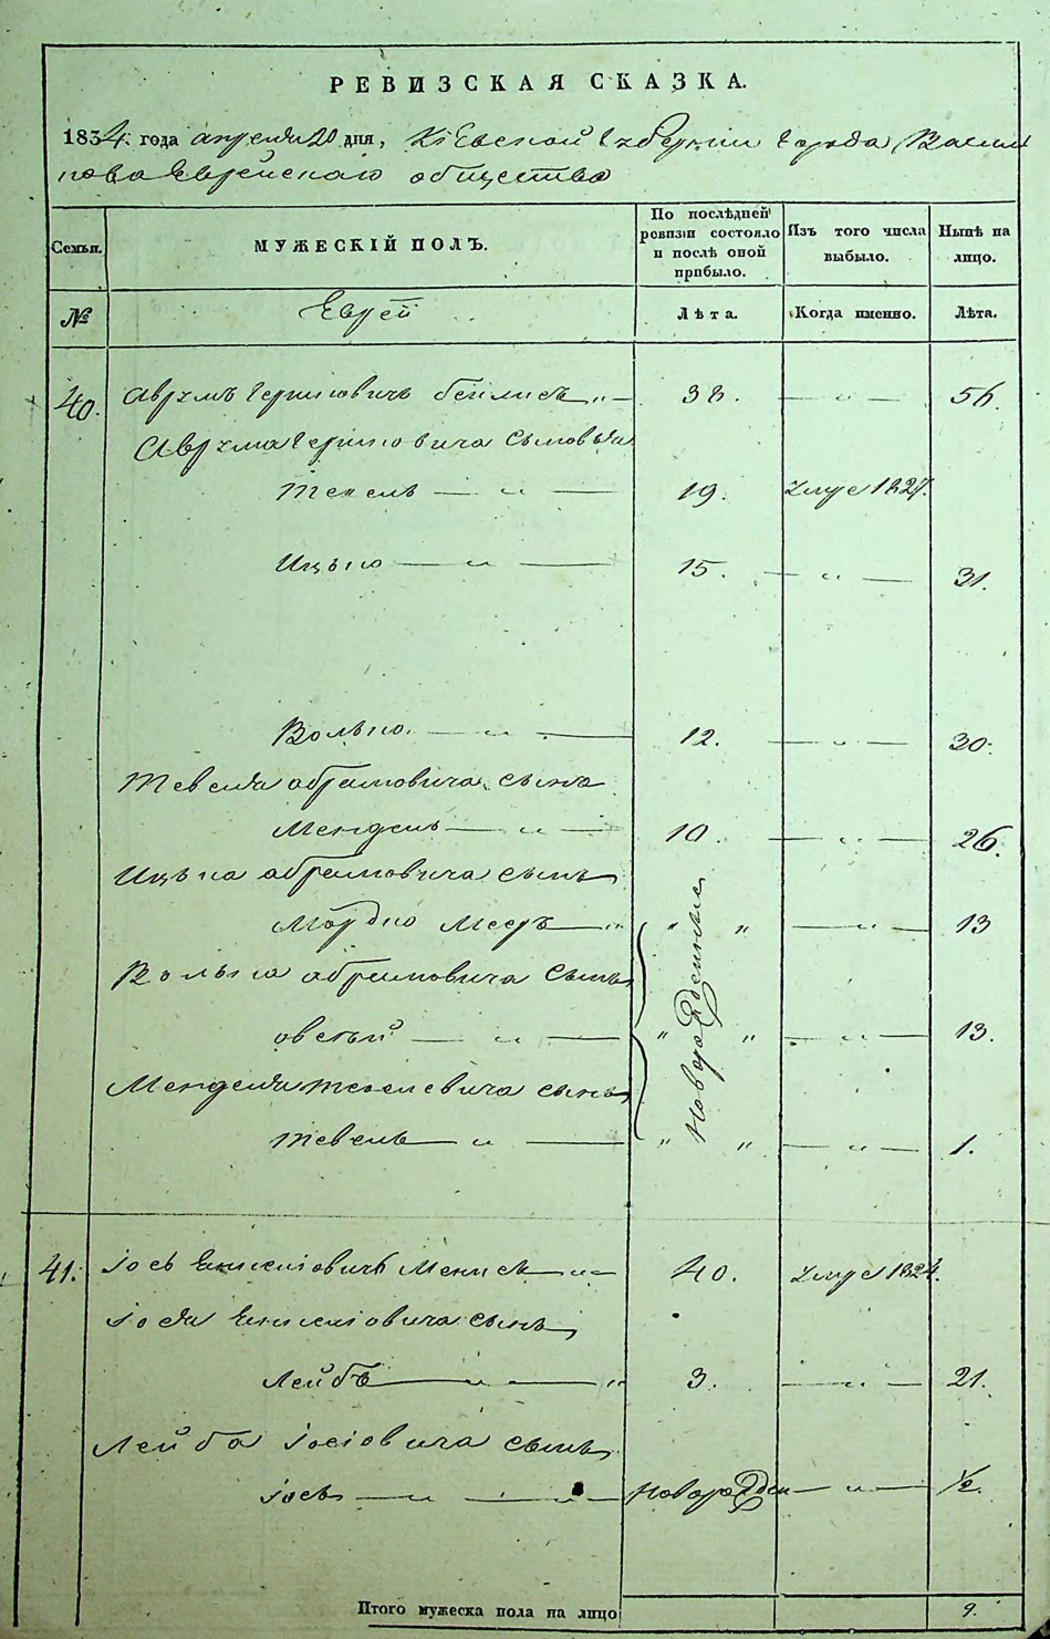 РЕВИЗСКАЯ СКАЗКА.
1834. года апреля 20 дня, Кіевской Губерніи Города Васил
кова Еврейскаго общества
Семьи. МУЖЕСКІЙ ПОЛЪ. По послѣдней ревизіи состояло и послѣ оной прибыло. Изъ того числа выбыло. Нынѣ на лицо.
№ Еврей Лѣта. Когда именно. Лѣта.
40. Аврумъ Гершковичь Бейлисъ „ — 38. — „ — 56.
Аврума Гершковича сыновья
Тевель — „ — 19. умре 1827.
Ицько — „ — 15. — „ — 31.
Волько — „ — 12. — „ — 30.
Тевеля абрамовича сына
Мендель — „ — 10. — „ — 26.
Ицька абрамовича сынъ
Мордко Мееръ — „ „ „ — „ — 13
Волька абрамовича сынъ
овсей — „ — „ „ — „ — 13.
Менделя тевелевича сынъ
тевель — „ — „ „ — „ — 1.
новорожденные
41. Іось Меннсъ — „ — 40. умре 1824.
Іося сынъ
Лейбъ — „ — „ 3. — „ — 21.
Лейба Іосіовича сынъ
Іось — „ — „ — новорожден — „ — ½.
Итого мужеска пола на лицо 9.